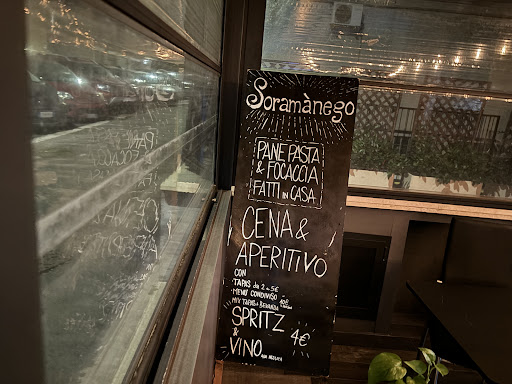 Soramànego
PANE PASTA
& FOCACCIA
FATTI IN CASA
CENA &
APERITIVO
CON
TAPAS da 2 a 5€
MENÙ CONDIVISO
MIX TAPAS & BEVANDA 10€
SPRITZ
&
4€
VINO